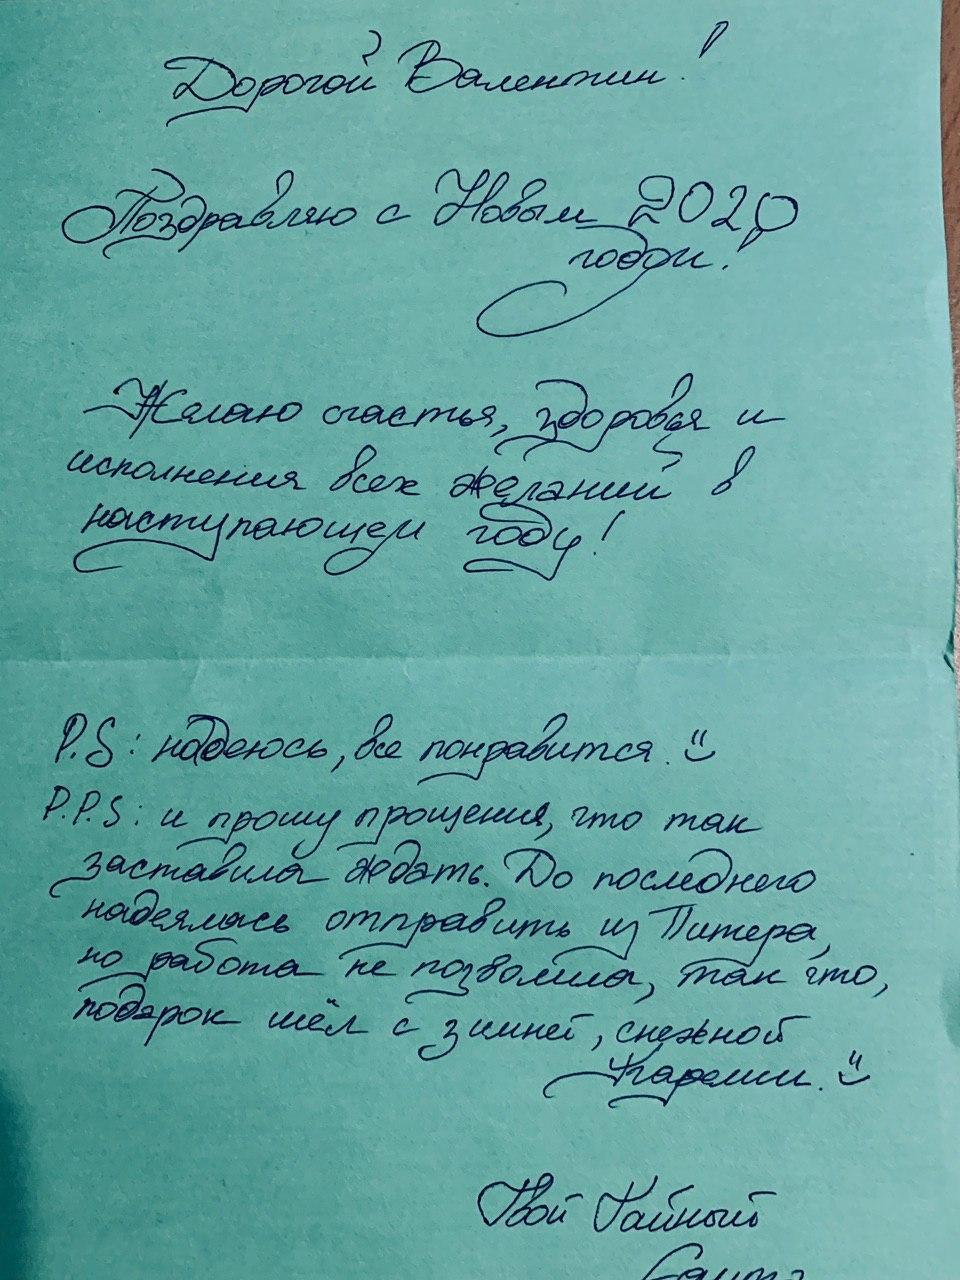 Дорогой Валентин!
Поздравляю с Новым 2020
годом!
Желаю счастья, здоровья и
исполнения всех желаний в
наступающем году!
P.S: надеюсь, все понравится. :)
P.P.S: и прошу прощения, что так
заставила ждать. До последнего
надеялась отправить из Питера,
но работа не позволила, так что,
подарок шёл с зимней, снежной
Карелии. :)
Твой Тайный
Санта